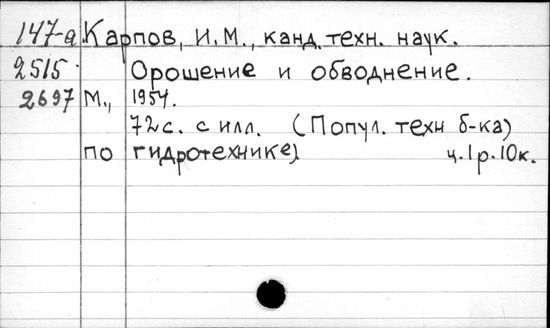 147-а Карпов, И.М., канд. техн. наук.
2515 Орошение и обводнение.
2697 М., 1954.
72с. с илл. (Попул. техн б-ка)
по гидротехнике) ц.1р.10к.